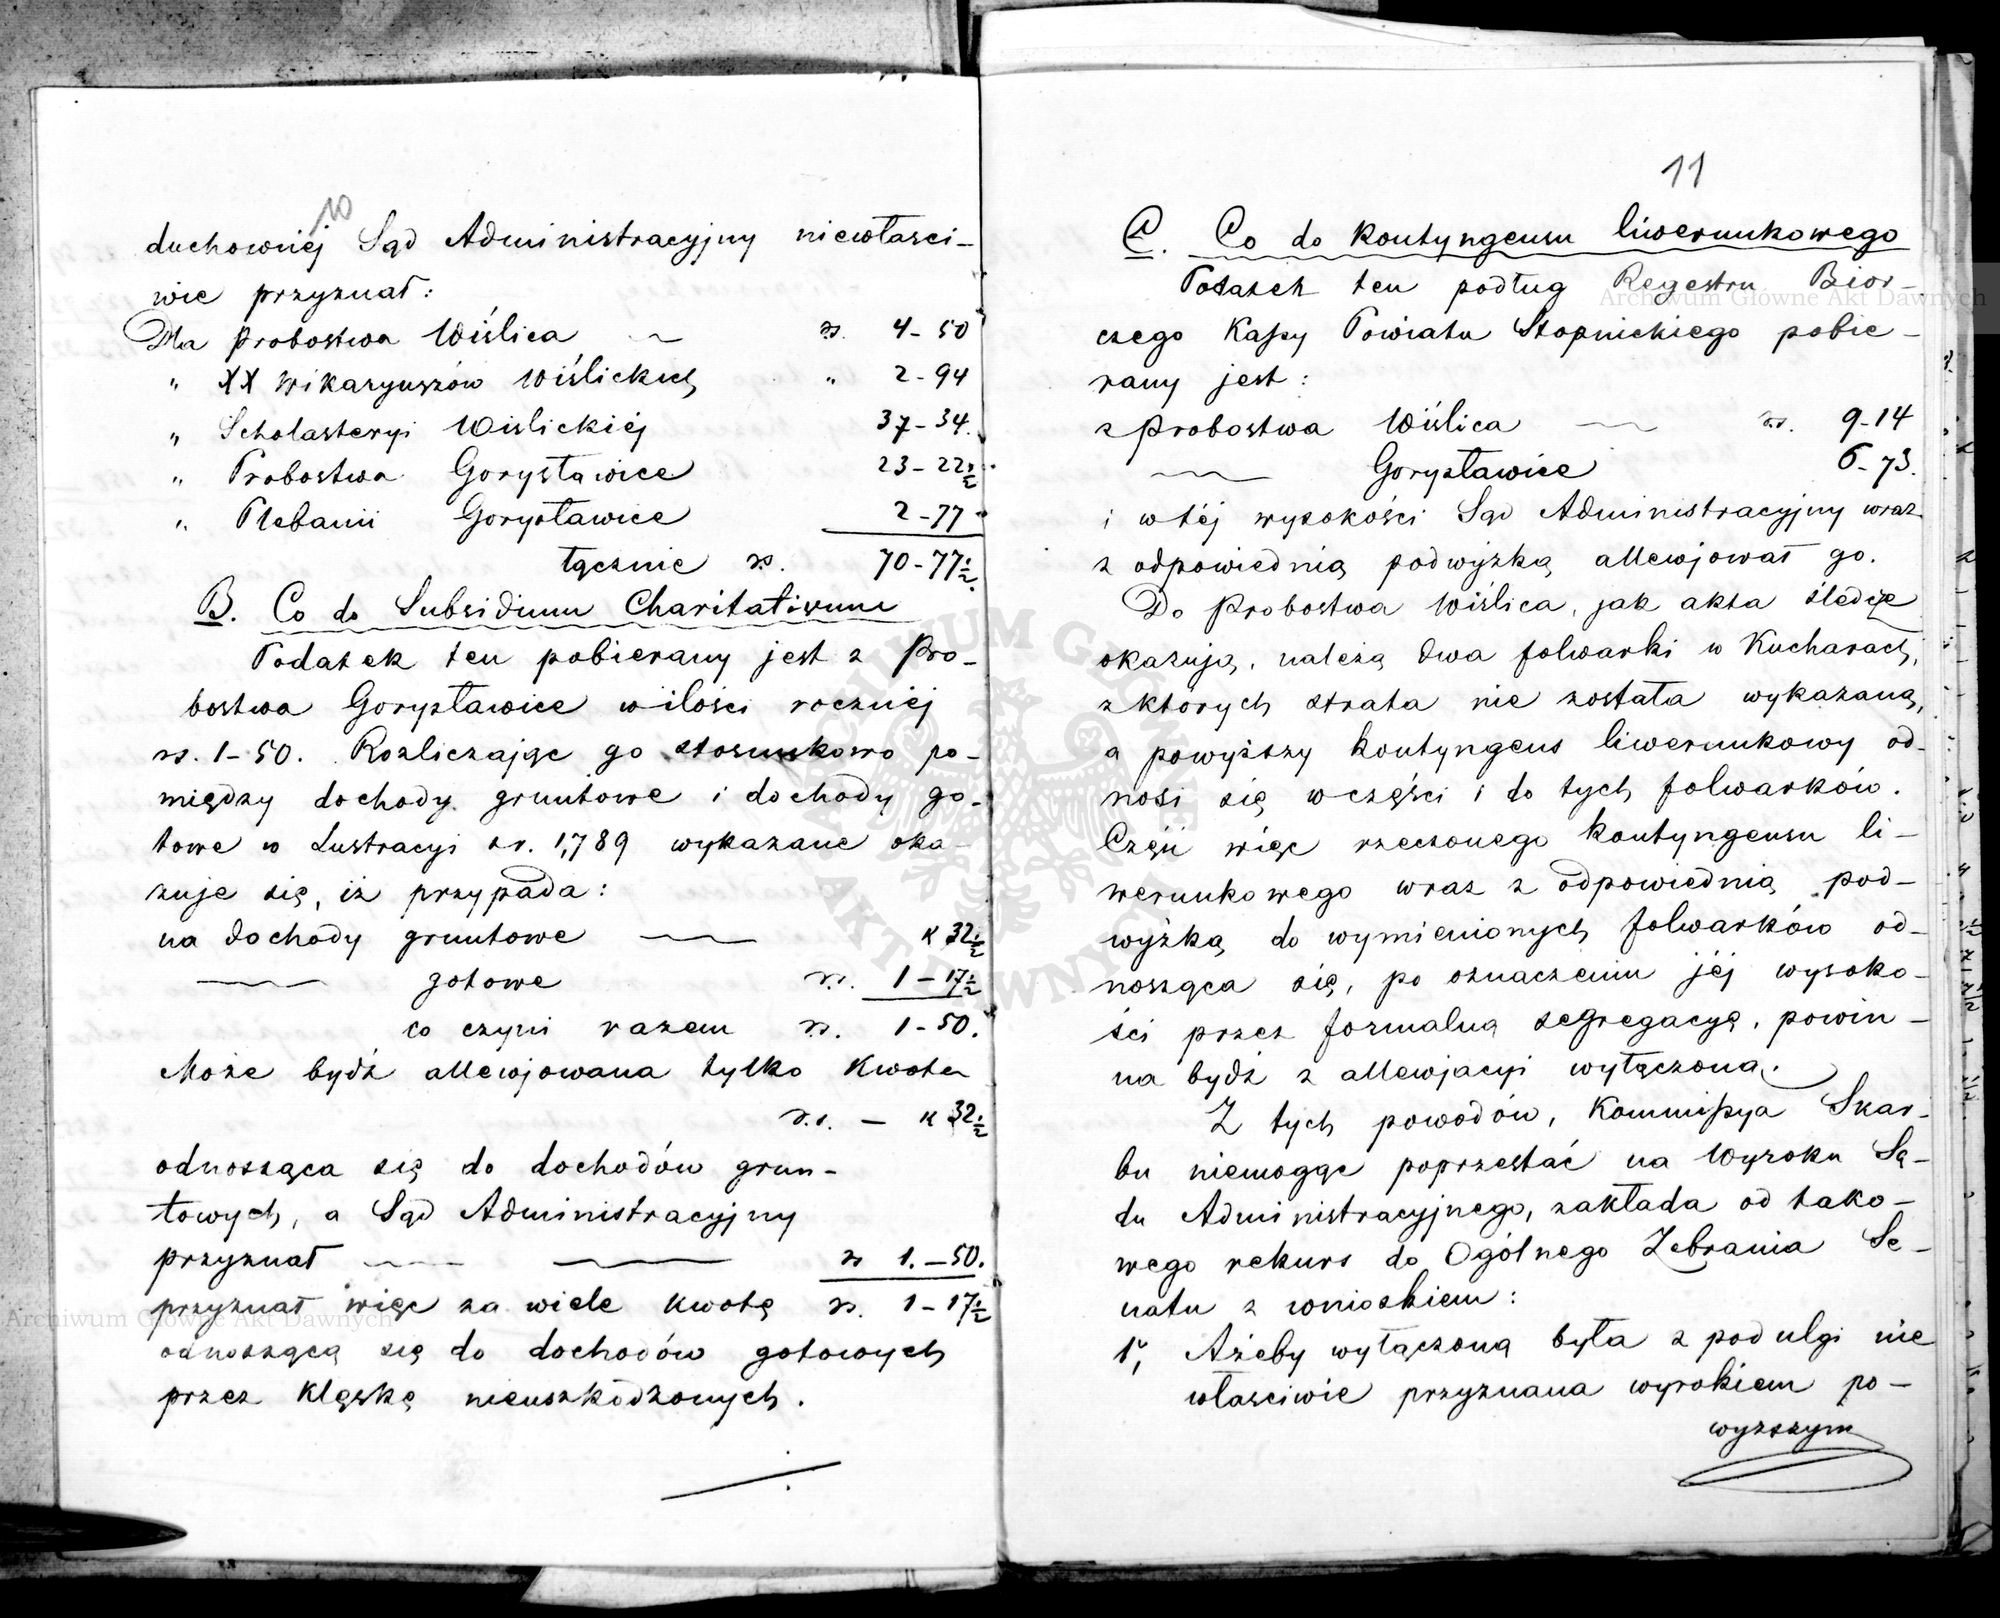 10
duchownéj Sąd Administracyjny niewłaści-
wie przyznał:
Dla Probostwa Wiślica rs. 4-50
" XX Wikaryuszów Wiślickich " 2-94
" Scholasteryi Wislickiéj 37-34.
" Probostwa Gorysławice 23-22½
" Plebanii Gorysławice 2-77
łącznie rs. 70-77½
B. Co do Subsidium Charitativum
Podatek ten pobierany jest z Pro-
bostwa Gorysławice w ilości rocznéj
rs. 1-50. Rozliczając go stosunkowo po-
między dochody gruntowe i dochody go-
towe w Lustracyi z r. 1,789 wykazane oka-
zuje się, iż przypada:
na dochody gruntowe k 32½
gotowe rs. 1-17½
co czyni razem rs. 1-50.
Może bydź allewjowana tylko kwota
rs. - k 32½
odnosząca się do dochodów grun-
towych, a Sąd Administracyjny
przyznał rs 1.-50.
przyznał więc za wiele kwotę rs. 1-17½
odnoszącą się do dochodów gotowych
przez klęskę nieuszkodzonych.
11
C. Co do kontyngensu liwerunkowego
Podatek ten podług Regestru Bior-
czego Kassy Powiatu Stopnickiego pobie-
rany jest:
z Probostwa Wiślica rs. 9-14
Gorysławice 6-73.
i w téj wysokości Sąd Administracyjny wraz
z odpowiednią podwyżką allewjował go.
Do Probostwa Wiślica, jak akta śledcze
okazują, należą dwa folwarki w Kucharach,
z których strata nie została wykazaną,
a powyższy kontyngens liwerunkowy od-
nosi się w części i do tych folwarków.
Część więc rzeczonego kontyngensu li-
werunkowego wraz z odpowiednią pod-
wyżką do wymienionych folwarków od-
nosząca się, po oznaczeniu jéj wysoko-
ści przez formalną segregacyą, powin-
na bydź z allewjacyi wyłączoną.
Z tych powodów, Kommissya Skar-
bu niemogąc poprzestać na Wyroku Są-
du Administracyjnego, zakłada od tako-
wego rekurs do Ogólnego Zebrania Se-
natu z wnioskiem:
1, Ażeby wyłączoną była z pod ulgi nie
właściwie przyznana wyrokiem po-
wyższym
Archiwum Główne Akt Dawnych
Archiwum Główne Akt Dawnych
ARCHIWUM GŁÓWNE AKT DAWNYCH